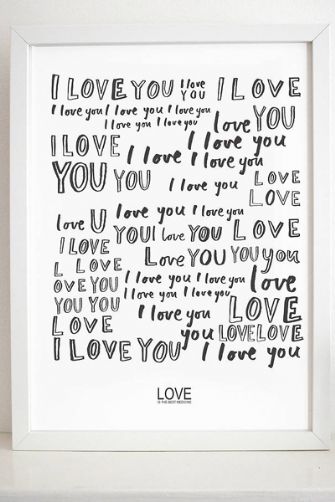 I LOVE YOU I love YOU I LOVE
I love you I love you I love you
I love you I love you love YOU
I LOVE I love you
I love I love you
YOU YOU I love you LOVE
LOVE
love U I love you I love you
YOU I love YOU LOVE
I LOVE
LOVE YOU YOU you
L LOVE
I love you I love you love
OVE YOU
I love you I love you
YOU YOU I love you LOVE
LOVE you LOVE LOVE
I LOVE YOU I love you
LOVE
IS THE BEST MEDICINE